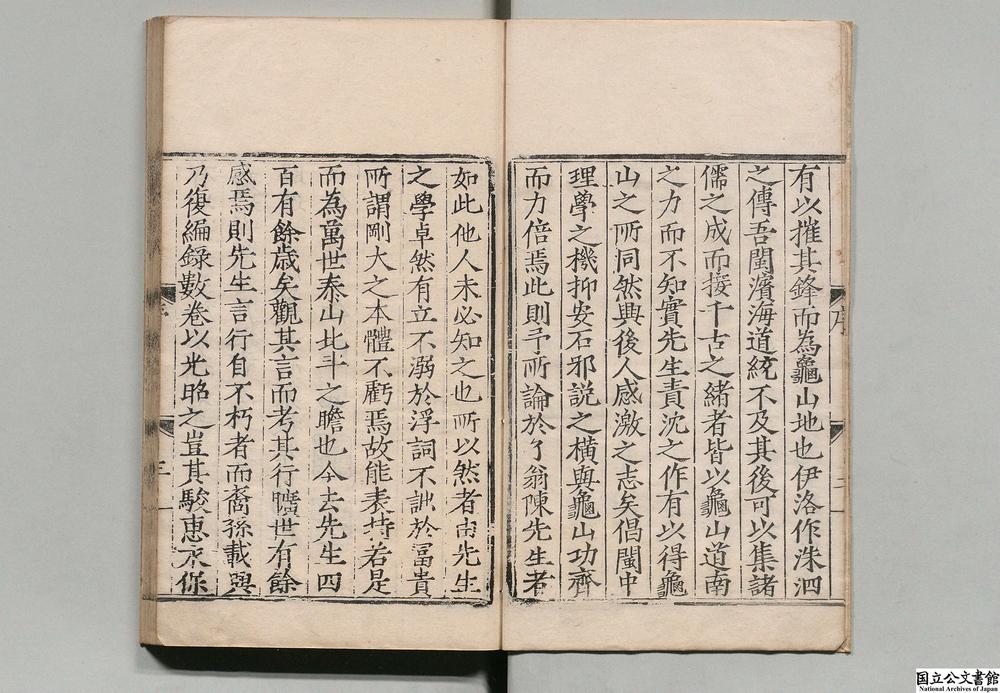 有以摧其鋒而為龜山地也伊洛作洙泗
之傳吾閩濱海道統不及其後可以集諸
儒之成而接千古之緒者皆以龜山道南
之力而不知實先生責沈之作有以得龜
山之所同然興後人感激之志矣倡閩中
理學之機抑安石邪說之橫與龜山功齊
而力倍焉此則予所論於了翁陳先生者
如此他人未必知之也所以然者由先生
之學卓然有立不溺於浮詞不詘於冨貴
所謂剛大之本體不虧焉故能表持若是
而為萬世泰山比斗之瞻也今去先生四
百有餘歲矣觀其言而考其行曠世有餘
感焉則先生言行自不朽者而裔孫載興
乃復編錄數卷以光昭之豈其駿惠永保
序
国立公文書館
National Archives of Japan